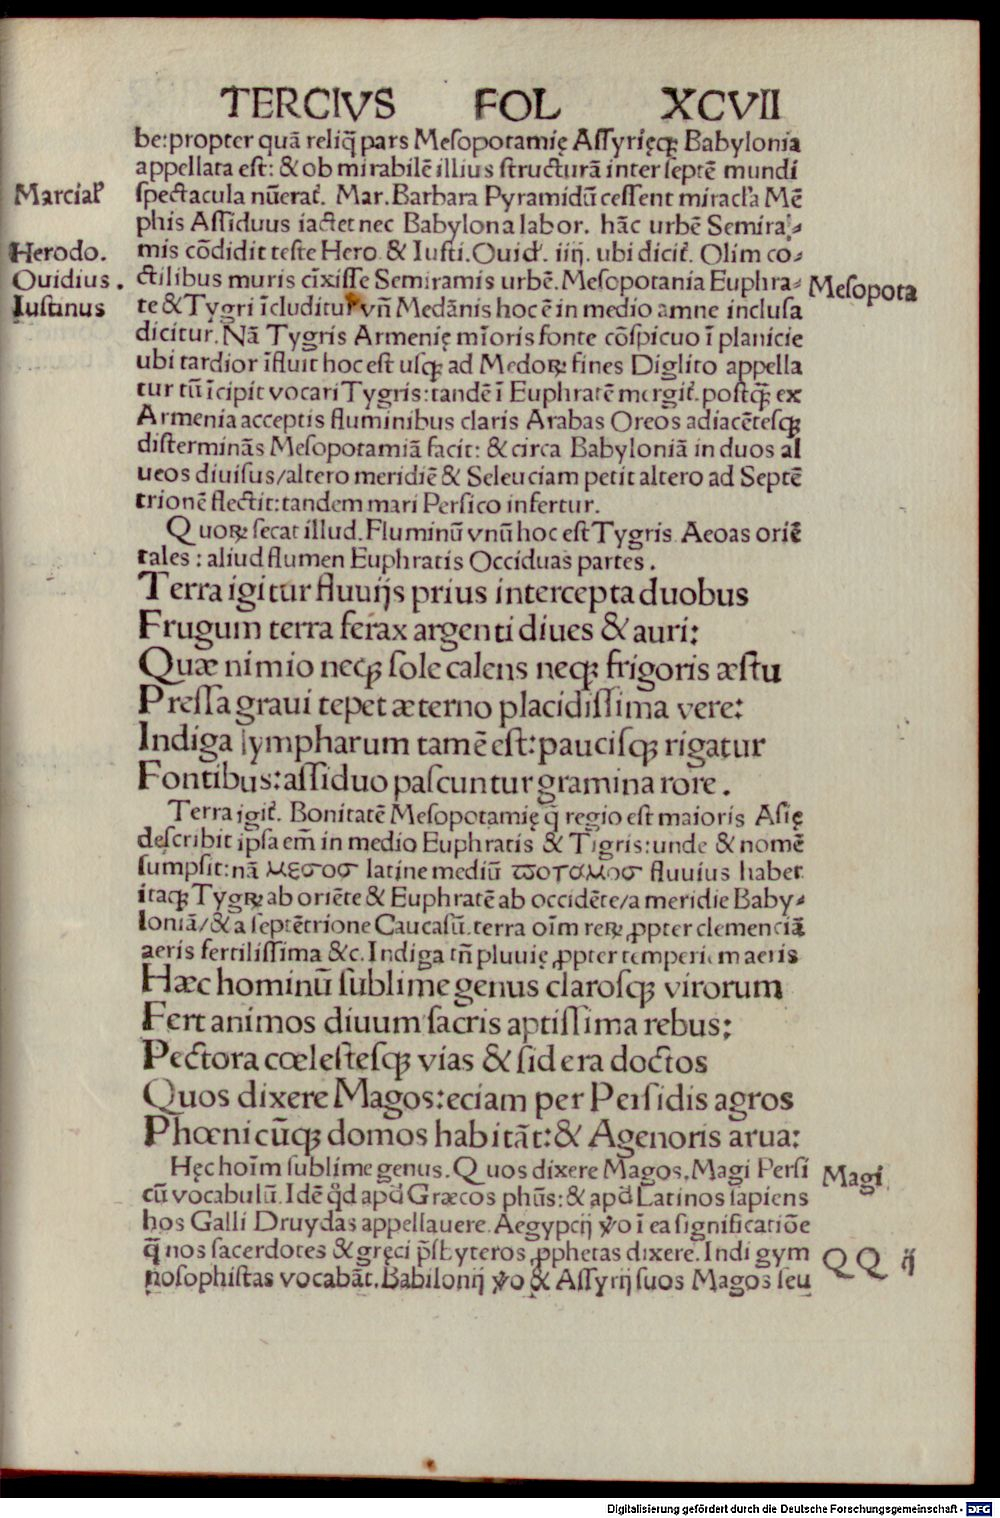 TERCIVS FOL XCVII
be:propter quā reliq̄ pars Mesopotamię Assyrięqꝫ Babylonia
appellata est: & ob mirabilē illius structurā inter septē mundi
Marcial᷑
spectacula nūerat᷑. Mar. Barbara Pyramidū cessent miracl'a Mē
phis Assiduus iactet nec Babylona labor. hāc urbē Semira⸗
Herodo.
mis cōdidit teste Hero. & Iusti. Ouid'. iiij. ubi dicit᷑. Olim co⸗
Ouidius.
ctilibus muris cīxisse Semiramis urbē. Mesopotania Euphra⸗
Mesopota
Iustinus
te & Tygri īcluditur vn̄ Medānis hoc ē in medio amne inclusa
dicitur. Nā Tygris Armenię mīoris fonte cōspicuo ī planicie
ubi tardior īfluit hoc est usqꝫ ad Medoꝝ fines Diglito appella
tur tū īcipit vocari Tygris: tandē ī Euphratē mergit᷑. postqꝫ̄ ex
Armenia acceptis fluminibus claris Arabas Oreos adiacētesqꝫ
disterminās Mesopotamiā facit: & circa Babyloniā in duos al
ueos diuisus/altero meridiē & Seleuciam petit altero ad Septē
trionē flectit: tandem mari Persico infertur.
Quoꝝ secat illud. Fluminū vnū hoc est Tygris. Aeoas oriē
tales: aliud flumen Euphratis Occiduas partes.
Terra igitur fluuijs prius intercepta duobus
Frugum terra ferax argenti diues & auri:
Quæ nimio neqꝫ sole calens neqꝫ frigoris æstu
Pressa graui tepet æterno placidissima vere:
Indiga lympharum tamē est: paucisqꝫ rigatur
Fontibus: assiduo pascuntur gramina rore.
Terra igit᷑. Bonitatē Mesopotamię q̄ regio est maioris Asię
describit ipsa em̄ in medio Euphratis & Tigris: unde & nomē
sumpsit: nā μεσοσ latine mediū ποταμοσ fluuius habet
itaqꝫ Tygꝝ ab oriēte & Euphratē ab occidēte/a meridie Baby⸗
loniā/& a septētrione Caucasū. terra oīm reꝝ ꝓpter clemenciā
aeris fertilissima &c. Indiga tn̄ pluuię ꝓpter temperiem aeris
Hæc hominū sublime genus clarosqꝫ virorum
Fert animos diuum sacris aptissima rebus:
Pectora cœlestesqꝫ vias & sidera doctos
Quos dixere Magos: eciam per Persidis agros
Phœnicūqꝫ domos habitāt: & Agenoris arua:
Hęc hoīm sublime genus. Quos dixere Magos. Magi Persi
Magi
cū vocabulū. Idē qd̄ apd̄ Græcos phūs: & apd̄ Latinos sapiens
hos Galli Druydas appellauere. Aegyptij v̊o ī ea significatiōe
q̄ nos sacerdotes & gręci p̄sbyteros ꝓphetas dixere. Indi gym
QQ ij
nosophistas vocabāt. Babilonij v̊o & Assyrij suos Magos seu
Digitalisierung gefördert durch die Deutsche Forschungsgemeinschaft - DFG